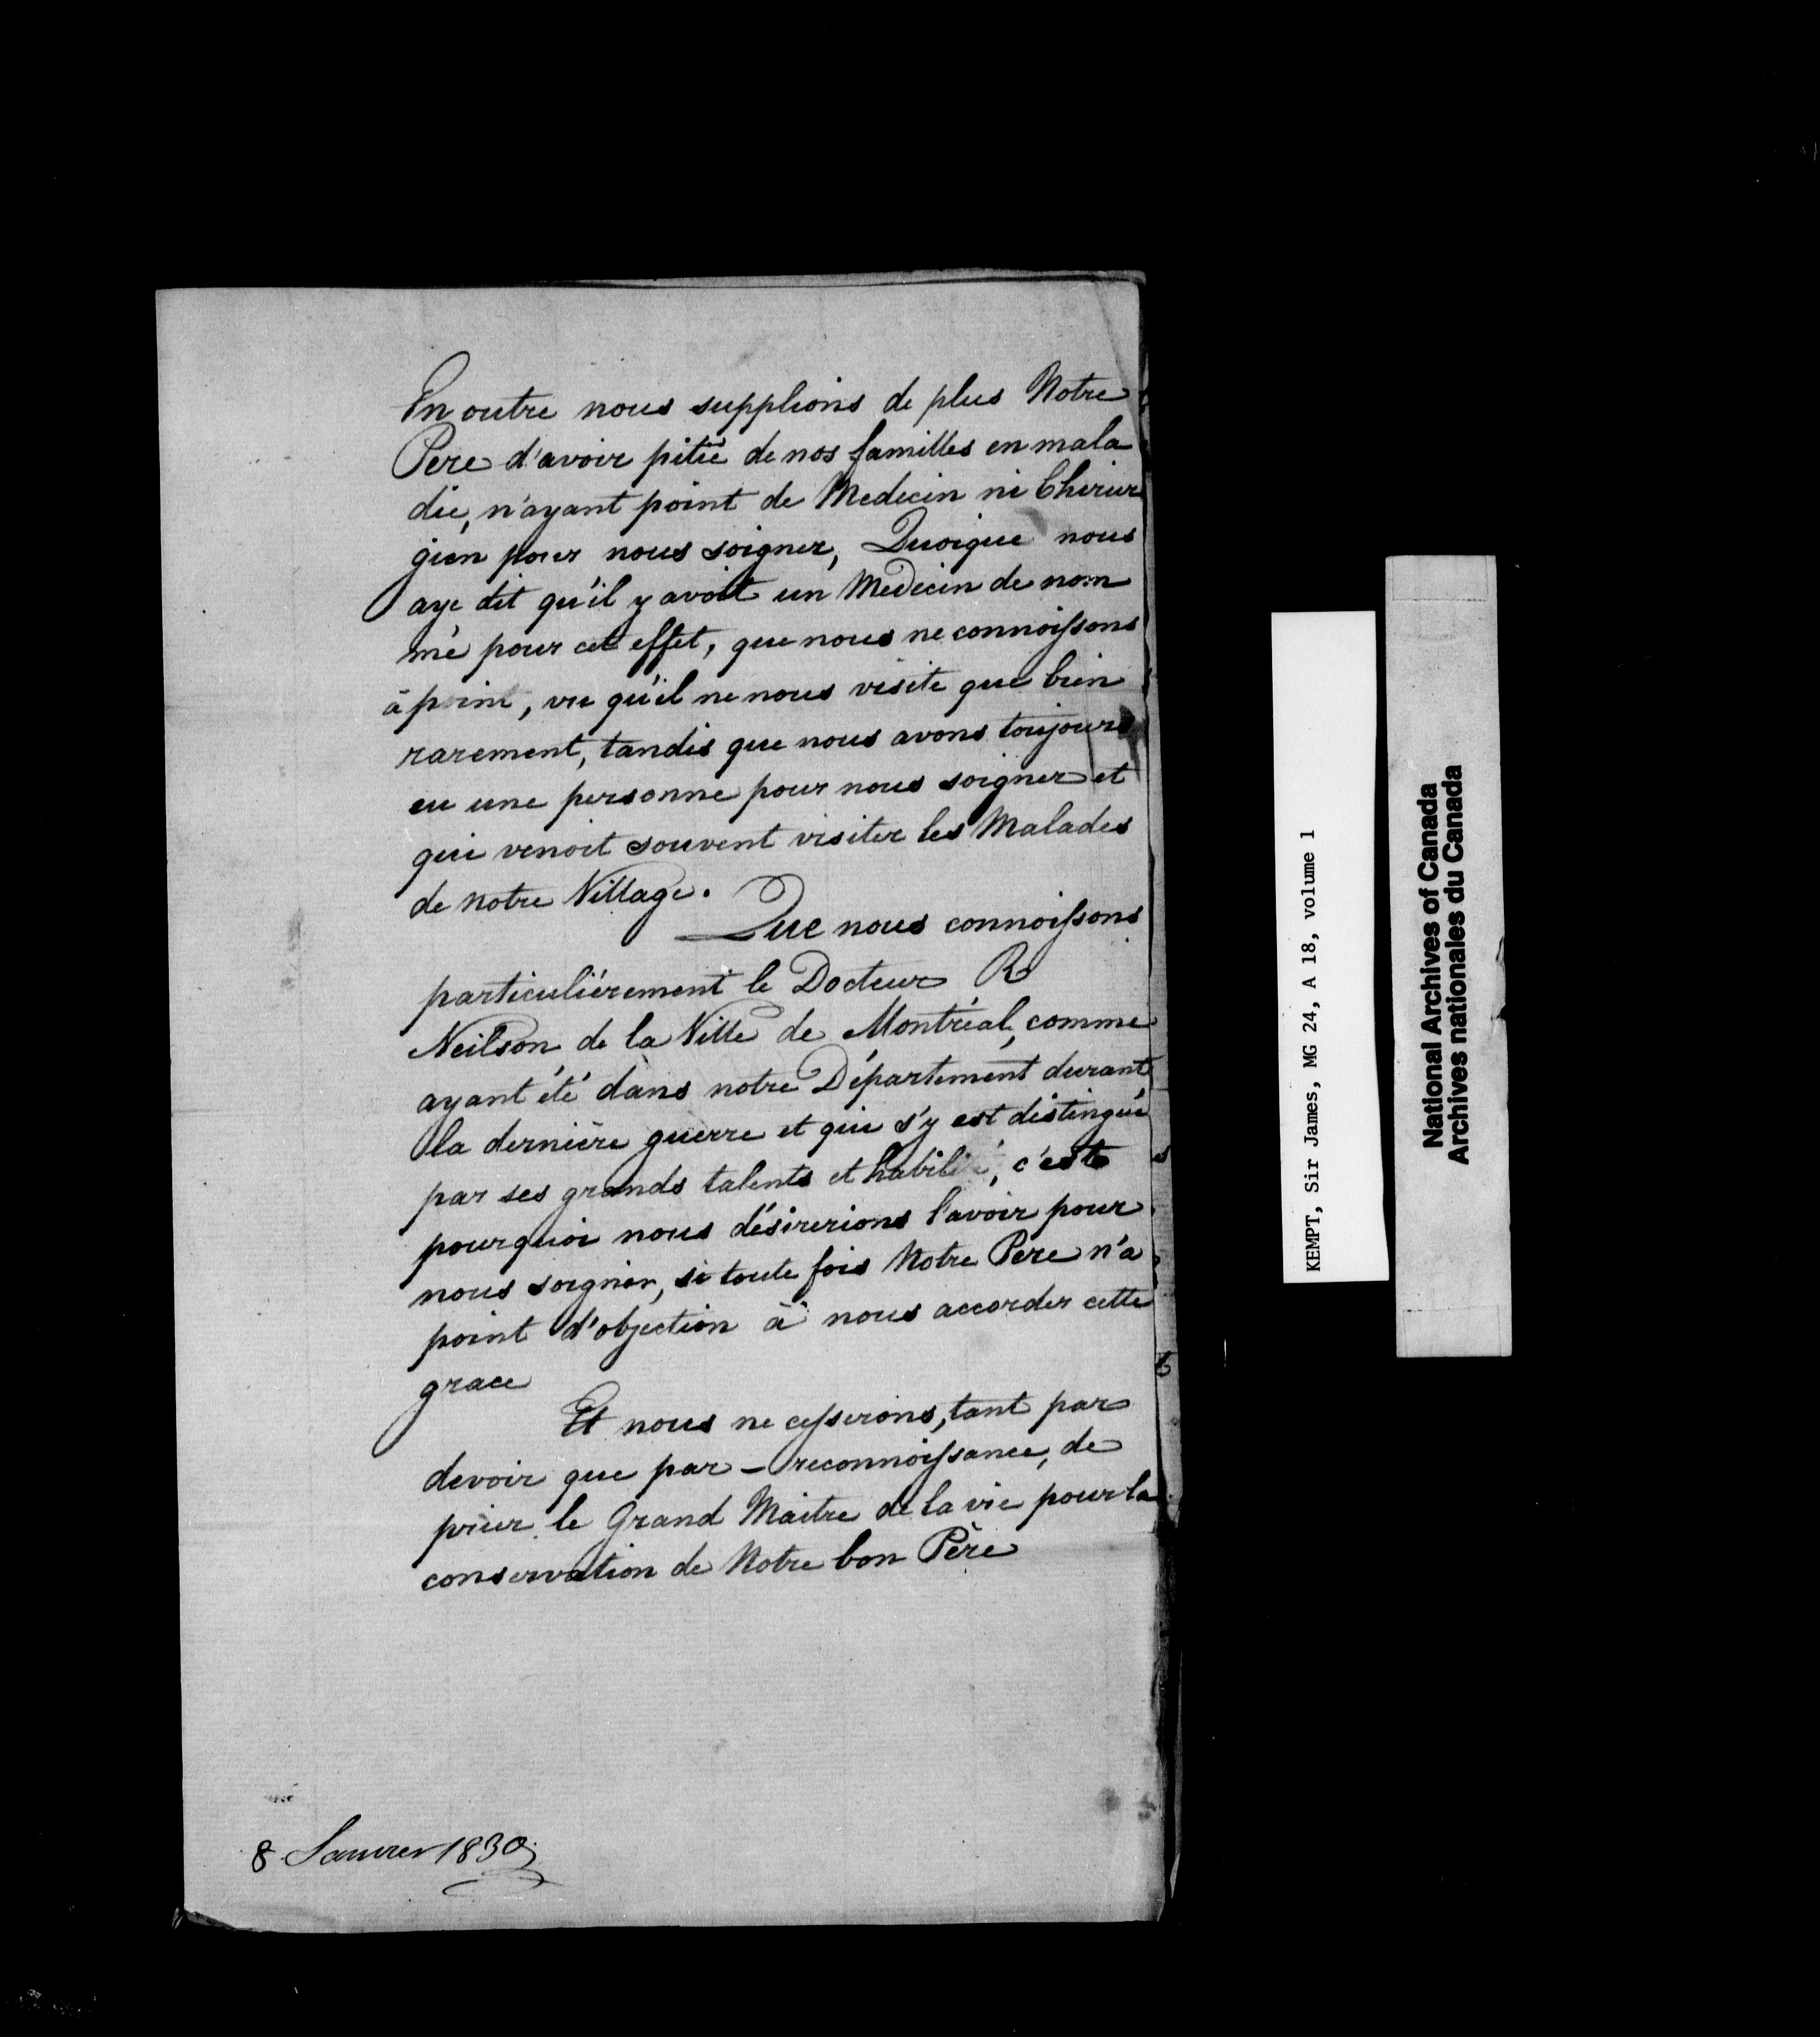 En outre nous supplions de plus Notre
Pere d'avoir pitié de nos familles en mala
die, n'ayant point de Medecin ni Chirur
gien pour nous soigner, Quoique nous
aye dit qu'il y avoit un Medecin de nom
mé pour cet effet, que nous ne connoissons
à peine, vu qu'il ne nous visite que bien
rarement, tandis que nous avons toujours
eu une personne pour nous soigner et
qui venoit souvent visiter les Malades
de notre Village.
Que nous connoissons
particuliérement le Docteur R
Neilson de la Ville de Montréal, comme
ayant été dans notre Département durant
la dernière guerre et qui s'y est distingué
par ses grands talents et habilité, c'est
pourquoi nous désirerions l'avoir pour
nous soigner, si toute fois Notre Pere n'a
point d'objection à nous accorder cette
grace
Et nous ne cesserons, tant par
devoir que par - reconnoissance, de
prier le Grand Maitre de la vie pour la
conservation de Notre bon Père
8 Janvier 1830
KEMPT, Sir James, MG 24, A 18, volume 1
National Archives of Canada
Archives nationales du Canada